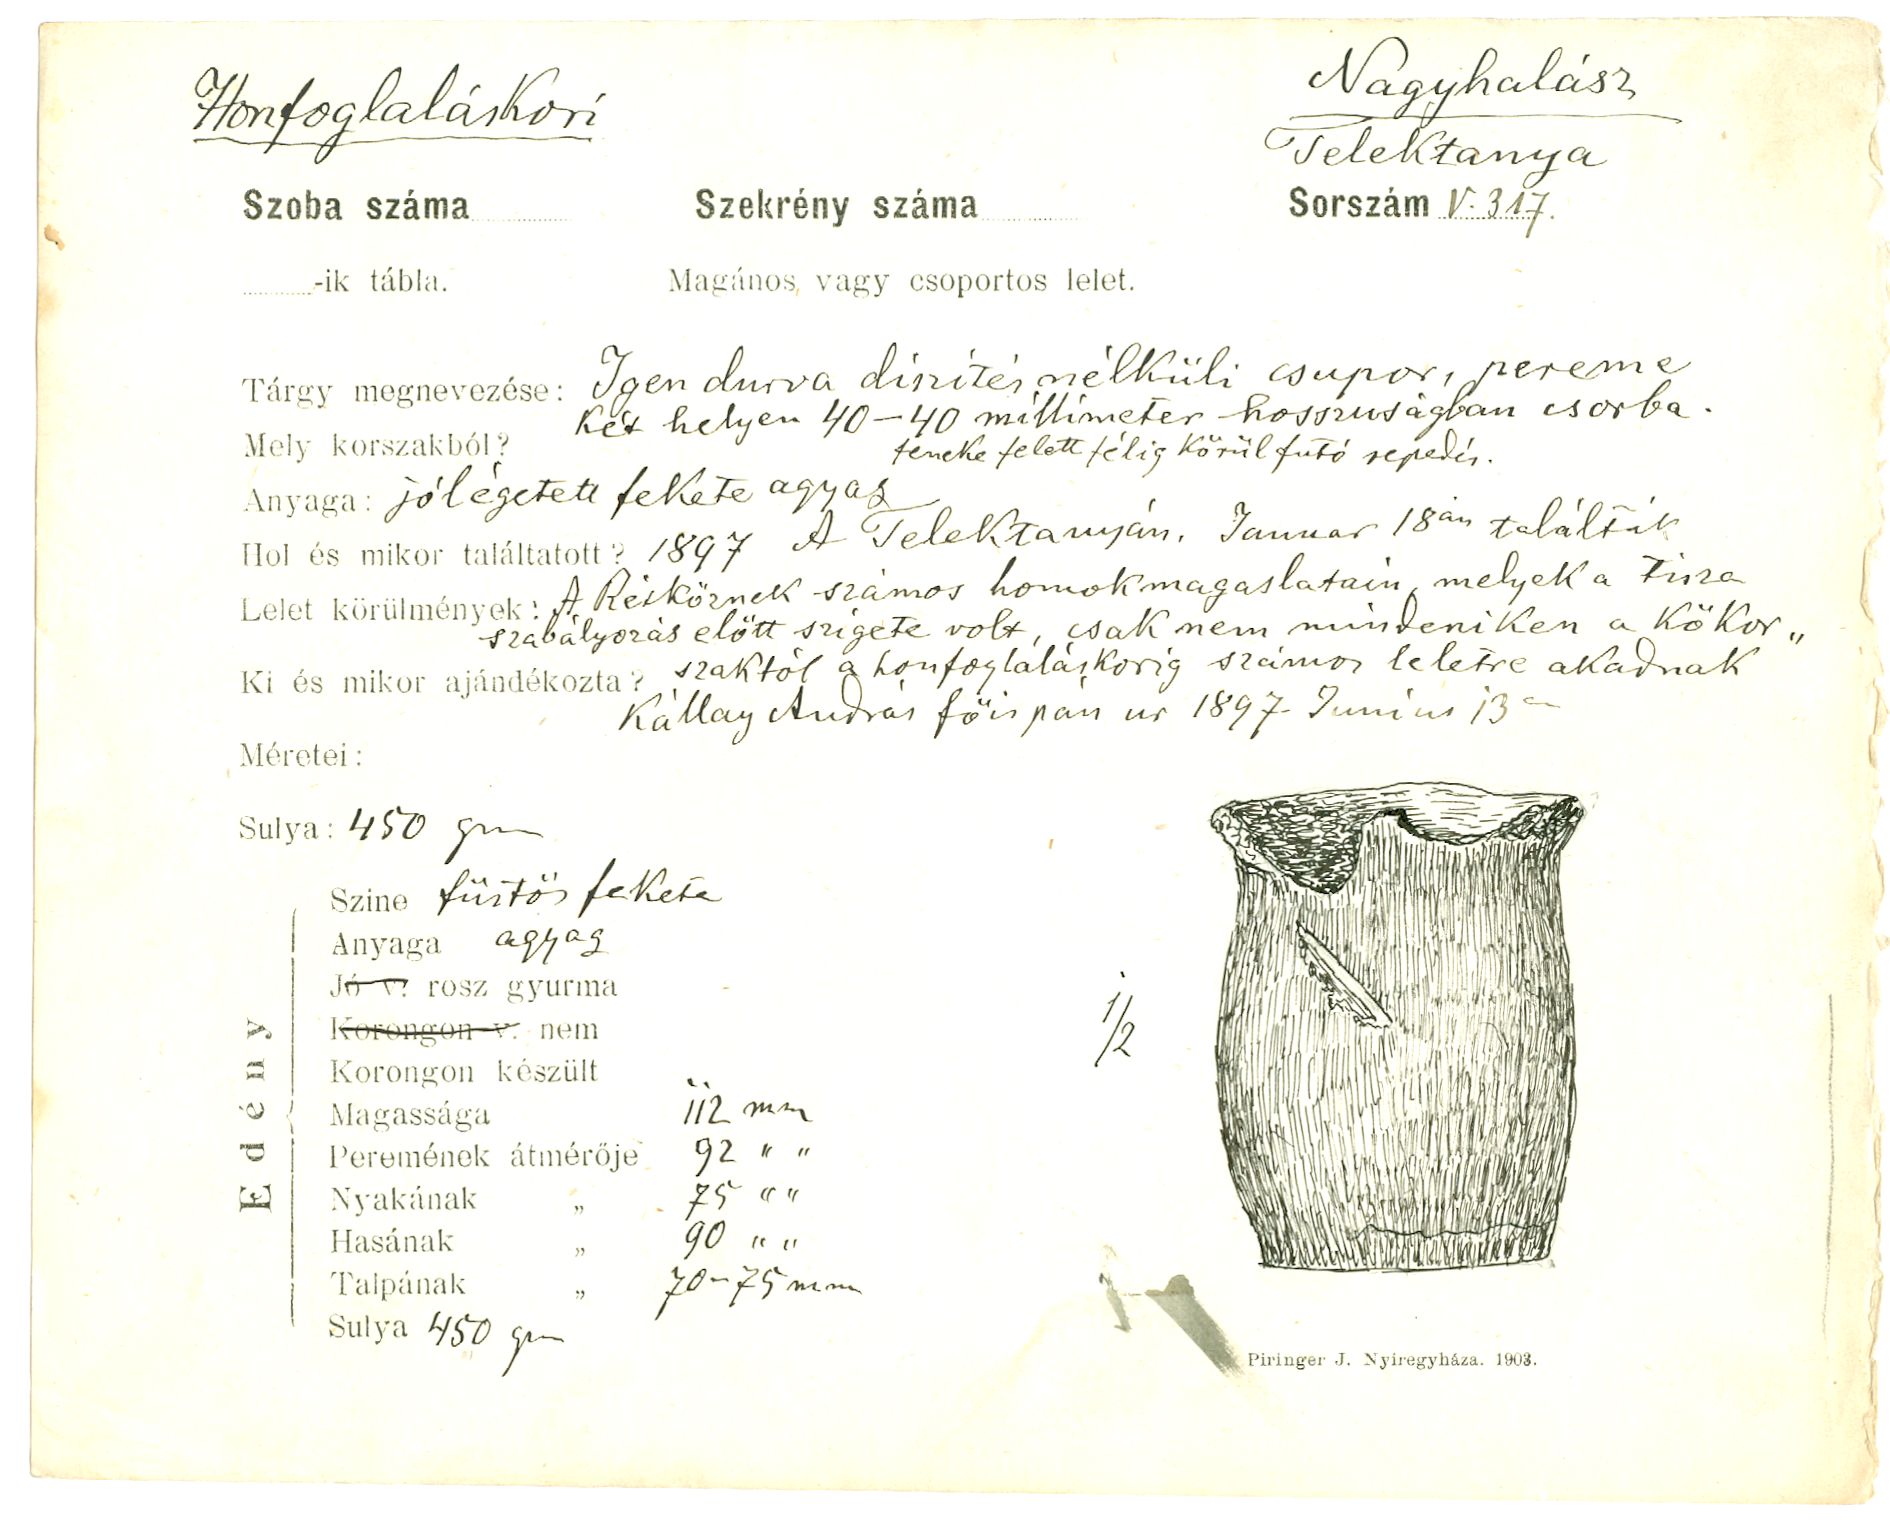 Honfoglaláskori
Nagyhalász
Telektanya
Szoba száma
Szekrény száma
Sorszám V. 317.
-ik tábla.
Magános vagy csoportos lelet.
Tárgy megnevezése: Igen durva díszítés nélküli csupor, pereme
két helyen 40–40 millimeter hosszuságban csorba.
Mely korszakból?
feneke felett félig körül futó repedés.
Anyaga: jól égetett fekete agyag
Hol és mikor találtatott? 1897 A Telektanyán. Januar 18án találták
Lelet körülmények: A Rétköznek számos homokmagaslatain, melyek a Tisza
szabályozás előtt szigete volt, csak nem mindeniken a kőkor„
Ki és mikor ajándékozta? szaktól a honfoglaláskorig számos leletre akadnak
Kállay András főispán ur 1897 Junius 13án
Méretei:
Sulya: 450 gm
Edény
Szine füstös fekete
Anyaga agyag
Jó v. rosz gyurma
Korongon v. nem
Korongon készült
Magassága 112 mm
Peremének átmérője 92 " "
Nyakának „ 75 " "
Hasának „ 90 " "
Talpának „ 70–75 mm
Sulya 450 gm
1/2
Piringer J. Nyiregyháza. 1903.